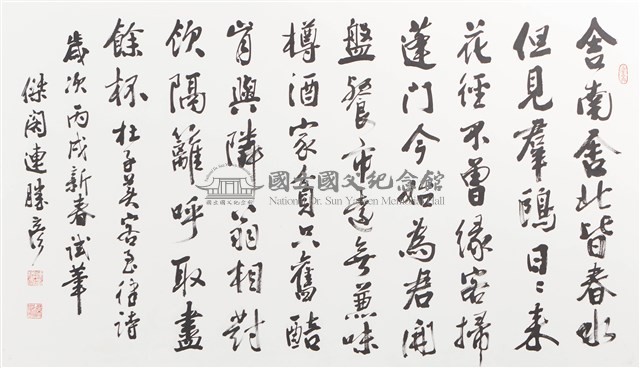 舍南舍北皆春水
但見羣鷗日〻來
花徑不曾緣客掃
蓬門今始為君開
盤餐市遠無兼味
樽酒家貧只舊醅
肯與隣翁相對
飲隔籬呼取盡
餘杯 杜子美客至律詩
歲次丙戌新春試筆
傑閣連勝彥
國立國父紀念館
國立國父紀念館
National Dr. Sun Yat-sen Memorial Hall